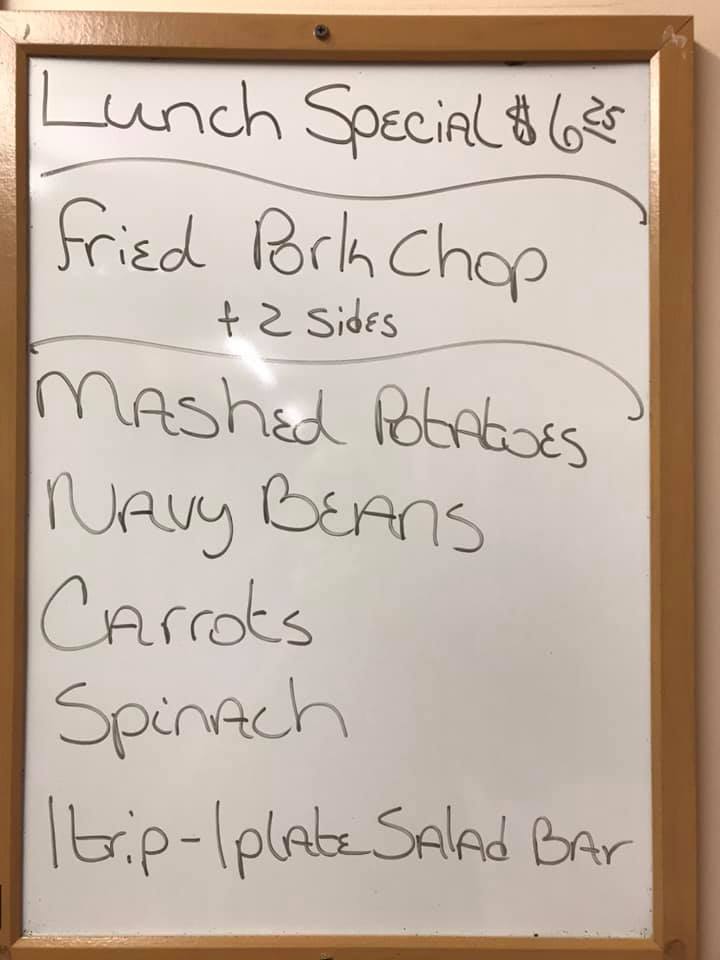 Lunch Special $6.25
Fried Pork Chop
+ 2 Sides
Mashed Potatoes
Navy Beans
Carrots
Spinach
1 trip - 1 plate Salad Bar